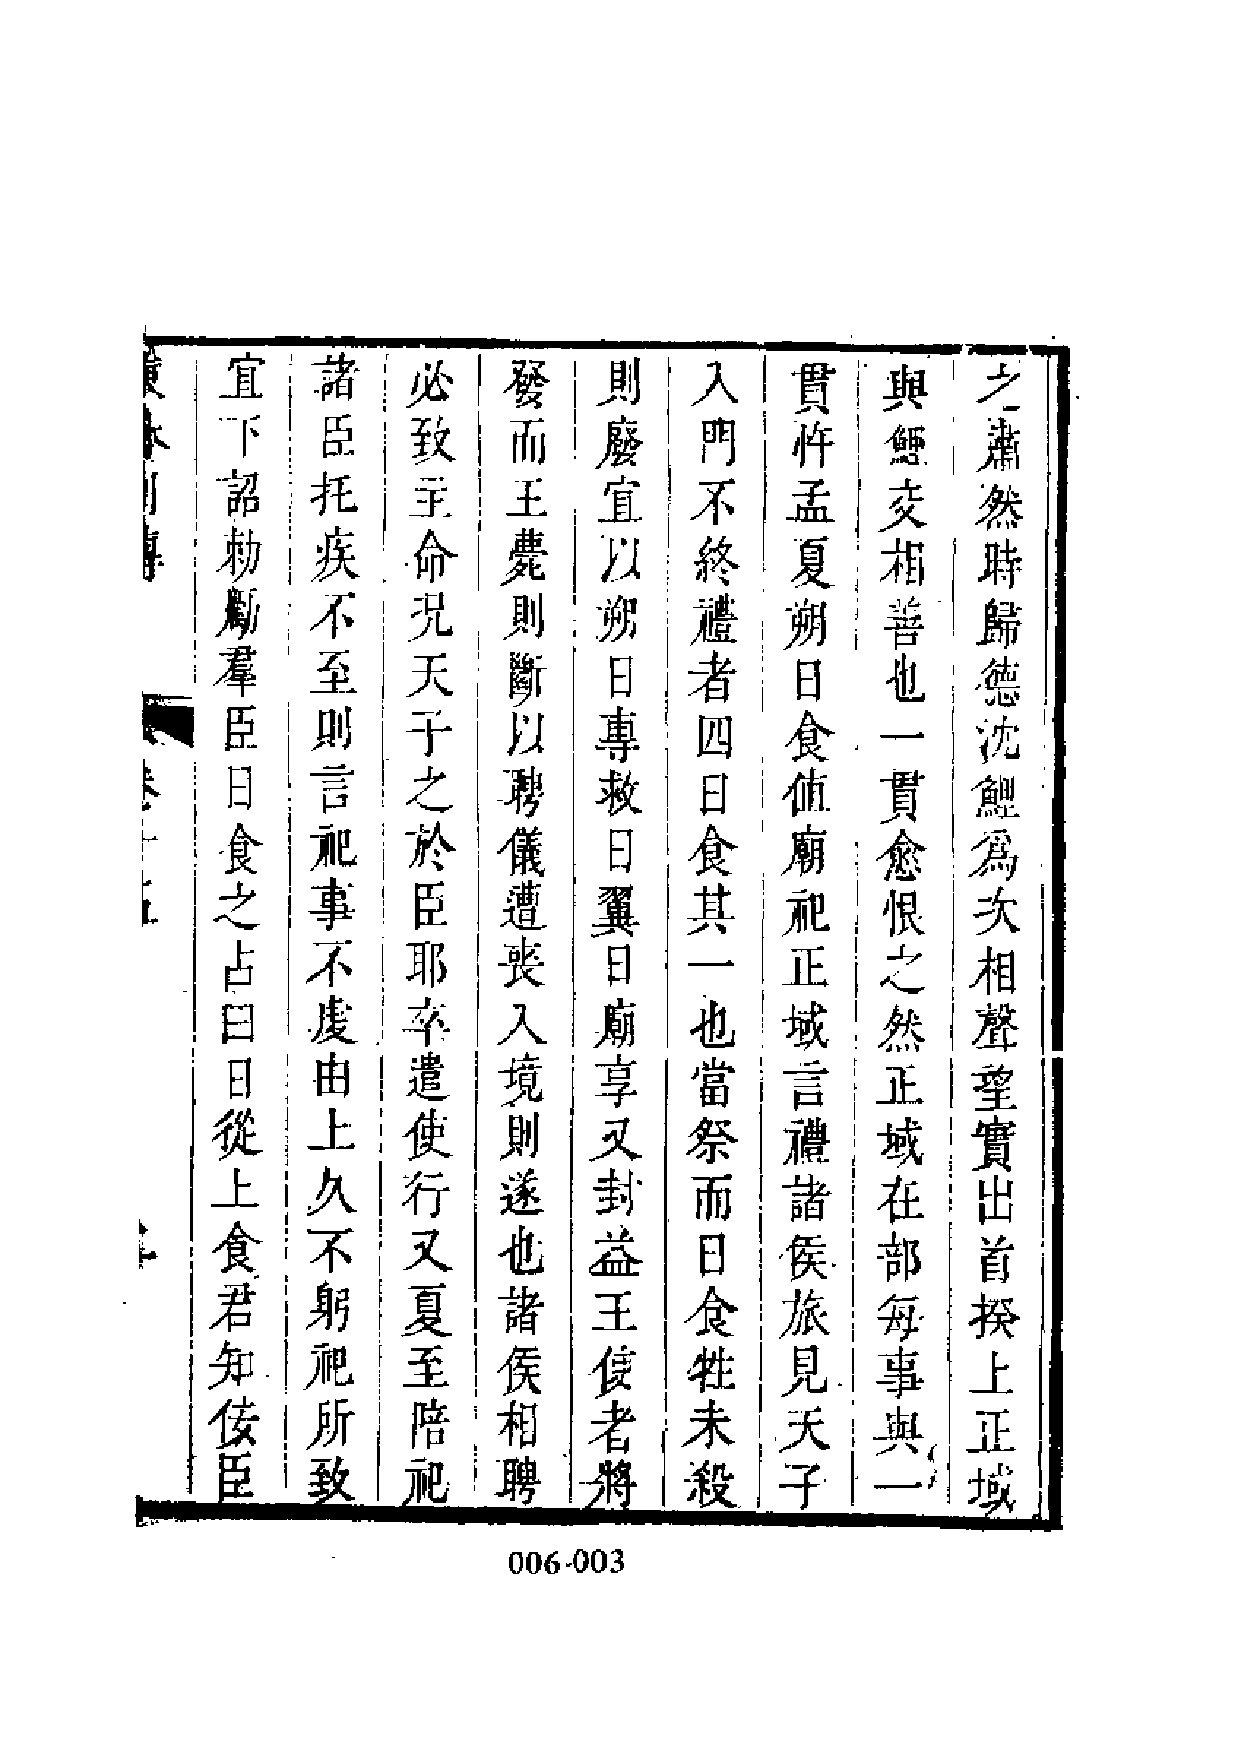 之蕭然時歸德沈鯉爲次相聲望實出首揆上正域
與鯉交相善也一貫愈恨之然正域在部每事與一
貫忤孟夏朔日食值廟祀正域言禮諸侯旅見天子
入門不終禮者四日食其一也當祭而日食牲未殺
則廢宜以朔日專救日翼日廟享又封益王使者將
發而王薨則斷以聘儀遭喪入境則遂也諸侯相聘
必致主命況天子之於臣耶卒遣使行又夏至陪祀
諸臣托疾不至則言祀事不虔由上久不躬祀所致
宜下詔勅勵羣臣日食之占曰日從上食君知佞臣
卷十五
006-003